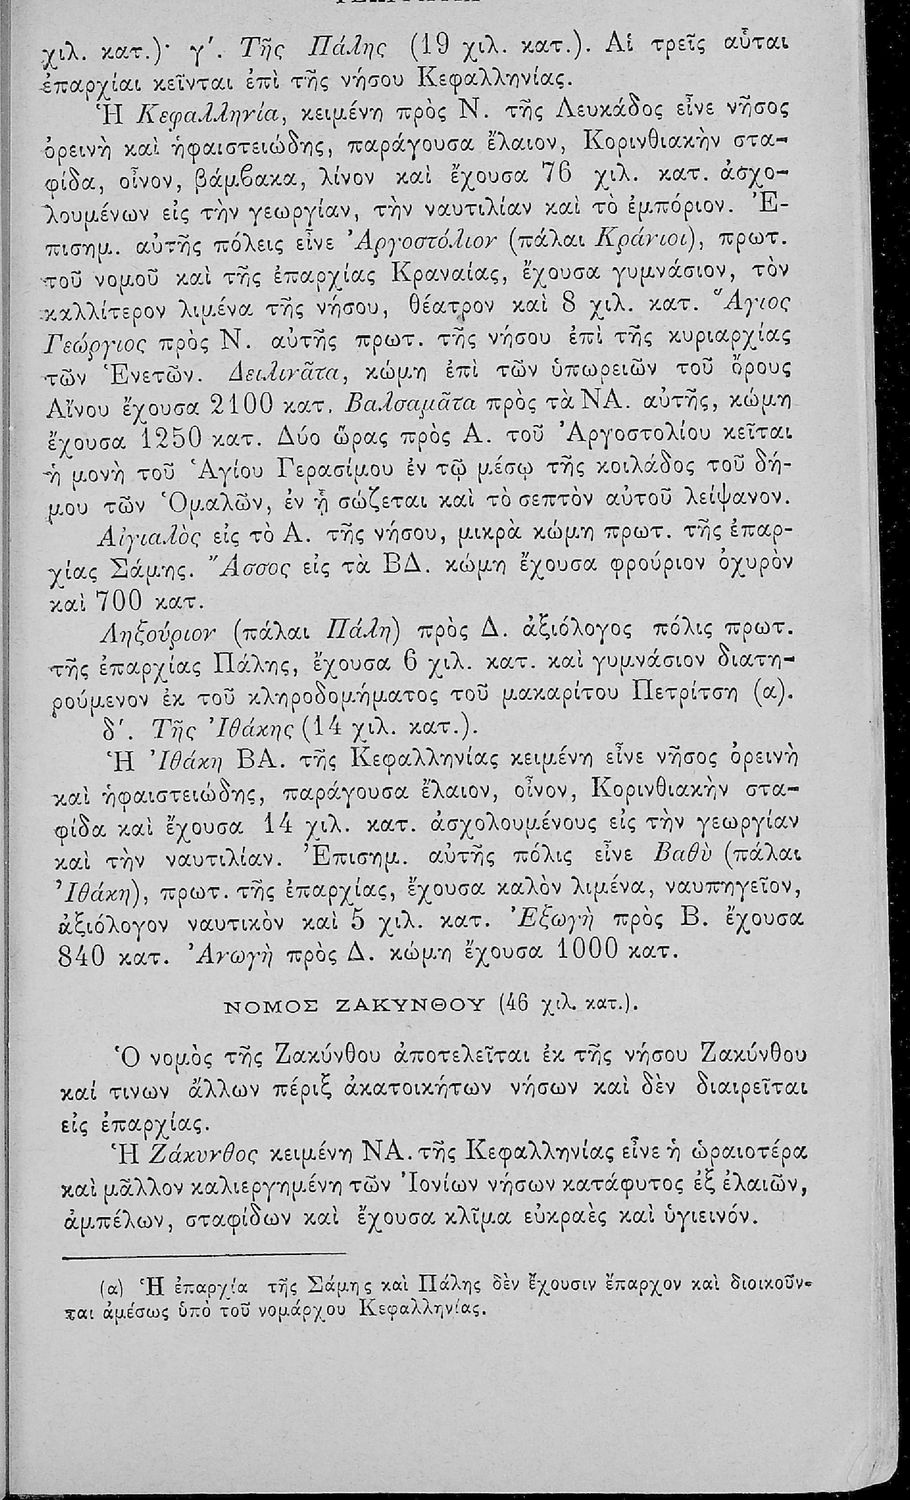 χιλ. κατ.)· γ΄. Τῆς Πάλης (19 χιλ. κατ.). Αἱ τρεῖς αὗται
ἐπαρχίαι κεῖνται ἐπὶ τῆς νήσου Κεφαλληνίας.
Ἡ Κεφαλληνία, κειμένη πρὸς Ν. τῆς Λευκάδος εἶνε νῆσος
ὀρεινὴ καὶ ἡφαιστειώδης, παράγουσα ἔλαιον, Κορινθιακὴν στα-
φίδα, οἶνον, βάμβακα, λίνον καὶ ἔχουσα 76 χιλ. κατ. ἀσχο-
λουμένων εἰς τὴν γεωργίαν, τὴν ναυτιλίαν καὶ τὸ ἐμπόριον. Ἐ-
πισημ. αὐτῆς πόλεις εἶνε Ἀργοστόλιον (πάλαι Κράνιοι), πρωτ.
τοῦ νομοῦ καὶ τῆς ἐπαρχίας Κραναίας, ἔχουσα γυμνάσιον, τὸν
καλλίτερον λιμένα τῆς νήσου, θέατρον καὶ 8 χιλ. κατ. Ἅγιος
Γεώργιος πρὸς Ν. αὐτῆς πρωτ. τῆς νήσου ἐπὶ τῆς κυριαρχίας
τῶν Ἑνετῶν. Δειλινᾶτα, κώμη ἐπὶ τῶν ὑπωρειῶν τοῦ ὄρους
Αἴνου ἔχουσα 2100 κατ. Βαλσαμᾶτα πρὸς τὰ ΝΑ. αὐτῆς, κώμη
ἔχουσα 1250 κατ. Δύο ὥρας πρὸς Α. τοῦ Ἀργοστολίου κεῖται
ἡ μονὴ τοῦ Ἁγίου Γερασίμου ἐν τῷ μέσῳ τῆς κοιλάδος τοῦ δή-
μου τῶν Ὁμαλῶν, ἐν ᾗ σώζεται καὶ τὸ σεπτὸν αὐτοῦ λείψανον.
Αἰγιαλὸς εἰς τὸ Α. τῆς νήσου, μικρὰ κώμη πρωτ. τῆς ἐπαρ-
χίας Σάμης. Ἄσσος εἰς τὰ ΒΔ. κώμη ἔχουσα φρούριον ὀχυρὸν
καὶ 700 κατ.
Ληξούριον (πάλαι Πάλη) πρὸς Δ. ἀξιόλογος πόλις πρωτ.
τῆς ἐπαρχίας Πάλης, ἔχουσα 6 χιλ. κατ. καὶ γυμνάσιον διατη-
ρούμενον ἐκ τοῦ κληροδομήματος τοῦ μακαρίτου Πετρίτση (α).
δ΄. Τῆς Ἰθάκης (14 χιλ. κατ.).
Ἡ Ἰθάκη ΒΑ. τῆς Κεφαλληνίας κειμένη εἶνε νῆσος ὀρεινὴ
καὶ ἡφαιστειώδης, παράγουσα ἔλαιον, οἶνον, Κορινθιακὴν στα-
φίδα καὶ ἔχουσα 14 χιλ. κατ. ἀσχολουμένους εἰς τὴν γεωργίαν
καὶ τὴν ναυτιλίαν. Ἐπισημ. αὐτῆς πόλις εἶνε Βαθὺ (πάλαι
Ἰθάκη), πρωτ. τῆς ἐπαρχίας, ἔχουσα καλὸν λιμένα, ναυπηγεῖον,
ἀξιόλογον ναυτικὸν καὶ 5 χιλ. κατ. Ἐξωγὴ πρὸς Β. ἔχουσα
840 κατ. Ἀνωγὴ πρὸς Δ. κώμη ἔχουσα 1000 κατ.
ΝΟΜΟΣ ΖΑΚΥΝΘΟΥ (46 χιλ. κατ.).
Ὁ νομὸς τῆς Ζακύνθου ἀποτελεῖται ἐκ τῆς νήσου Ζακύνθου
καί τινων ἄλλων πέριξ ἀκατοικήτων νήσων καὶ δὲν διαιρεῖται
εἰς ἐπαρχίας.
Ἡ Ζάκυνθος κειμένη ΝΑ. τῆς Κεφαλληνίας εἶνε ἡ ὡραιοτέρα
καὶ μᾶλλον καλιεργημένη τῶν Ἰονίων νήσων κατάφυτος ἐξ ἐλαιῶν,
ἀμπέλων, σταφίδων καὶ ἔχουσα κλῖμα εὐκραὲς καὶ ὑγιεινόν.
(α) Ἡ ἐπαρχία τῆς Σάμης καὶ Πάλης δὲν ἔχουσιν ἔπαρχον καὶ διοικοῦν-
ται ἀμέσως ὑπὸ τοῦ νομάρχου Κεφαλληνίας.